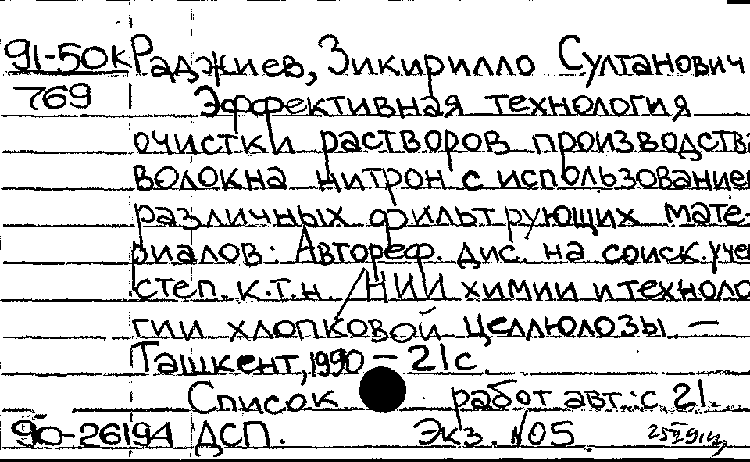 91-50к Раджиев, Зикирилло Султанович
769 Эффективная технология
очистки растворов производства
волокна нитрон с использование
различных фильтрующих мате-
риалов: Автореф. дис. на соиск. учен
степ. к.т.н. / НИИ химии и техноло
гии хлопковой целлюлозы. —
Ташкент, 1990 — 21 с.
Список работ авт.: с. 21.
90-26194 ДСП. Экз. №05.